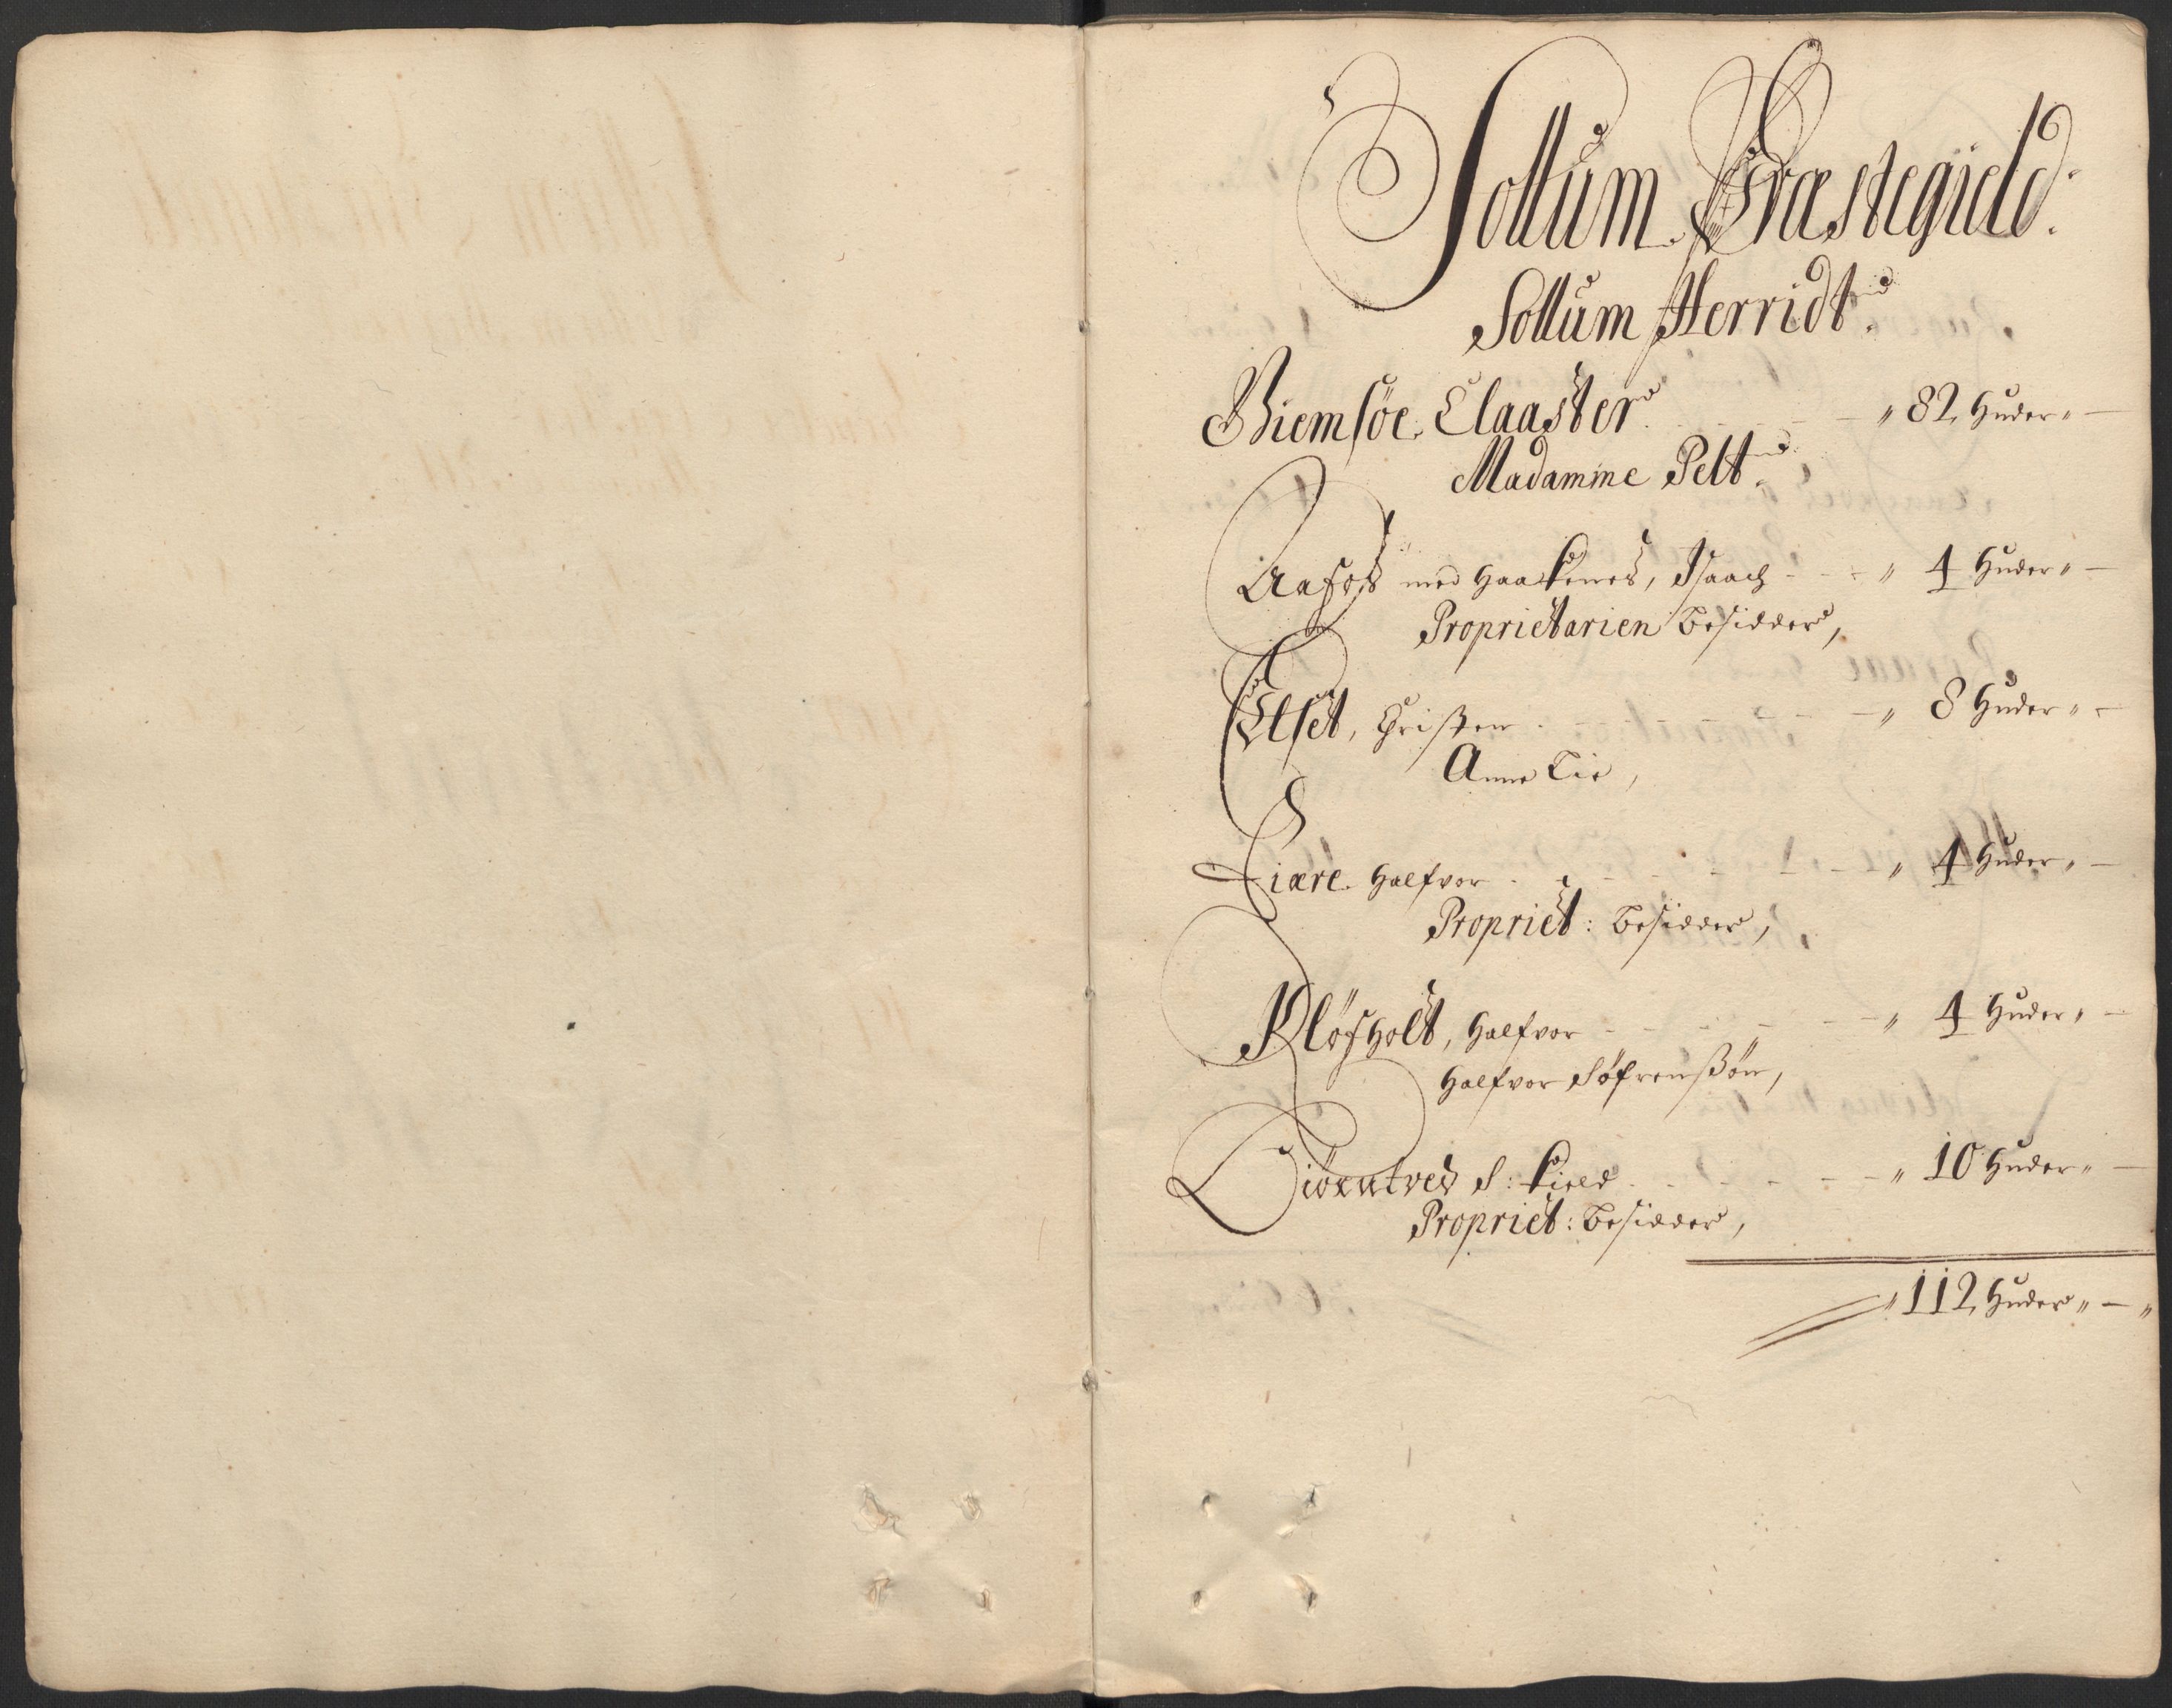 Sollum Præstegield.
Sollum Herridt.
Giemsöe Claaster " 82 Huder " —
Madamme Pelt.
Aafos med Haakenes, Isaach " 4 Huder " —
Proprietarien besidder,
Elset, Christen " 8 Huder " —
Anne Lie,
Fiære Halfvor " 4 Huder " —
Propriet: besidder,
Kløfholt, Halfvor " 4 Huder " —
Halfvor Søfrensßøn,
S: Kield " 10 Huder " —
Propriet: besidder,
" 112 Huder " — "